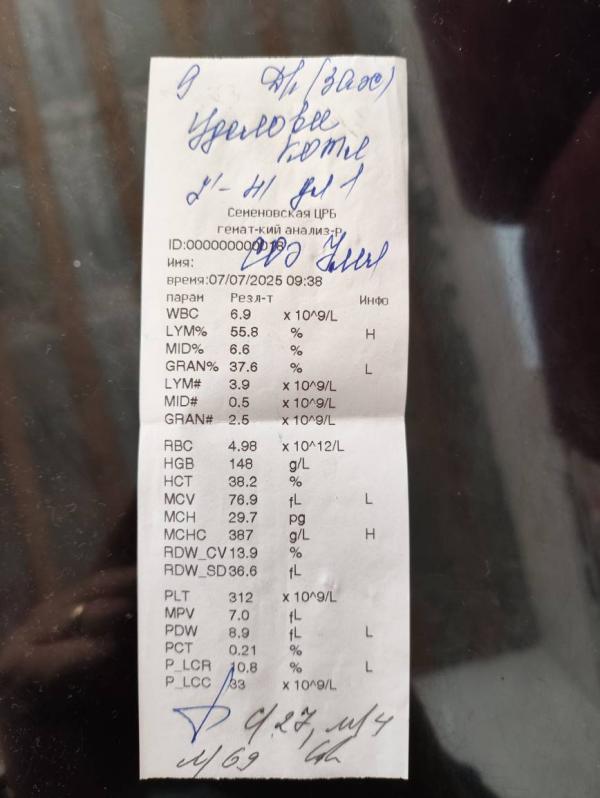 9 Д/с (Зах)
Катя
Семеновская ЦРБ
гемат-кий анализ-р
ID:000000000018
СОЭ 7мм
Имя:
время:07/07/2025 09:38
парам Резл-т Инфо
WBC 6.9 x 10^9/L
LYM% 55.8 % H
MID% 6.6 %
GRAN% 37.6 % L
LYM# 3.9 x 10^9/L
MID# 0.5 x 10^9/L
GRAN# 2.5 x 10^9/L
RBC 4.98 x 10^12/L
HGB 148 g/L
HCT 38.2 %
MCV 76.9 fL L
MCH 29.7 pg
MCHC 387 g/L H
RDW_CV 13.9 %
RDW_SD 36.6 fL
PLT 312 x 10^9/L
MPV 7.0 fL
PDW 8.9 fL L
PCT 0.21 %
P_LCR 10.8 % L
P_LCC 33 x 10^9/L
с/27, м/4
л/69